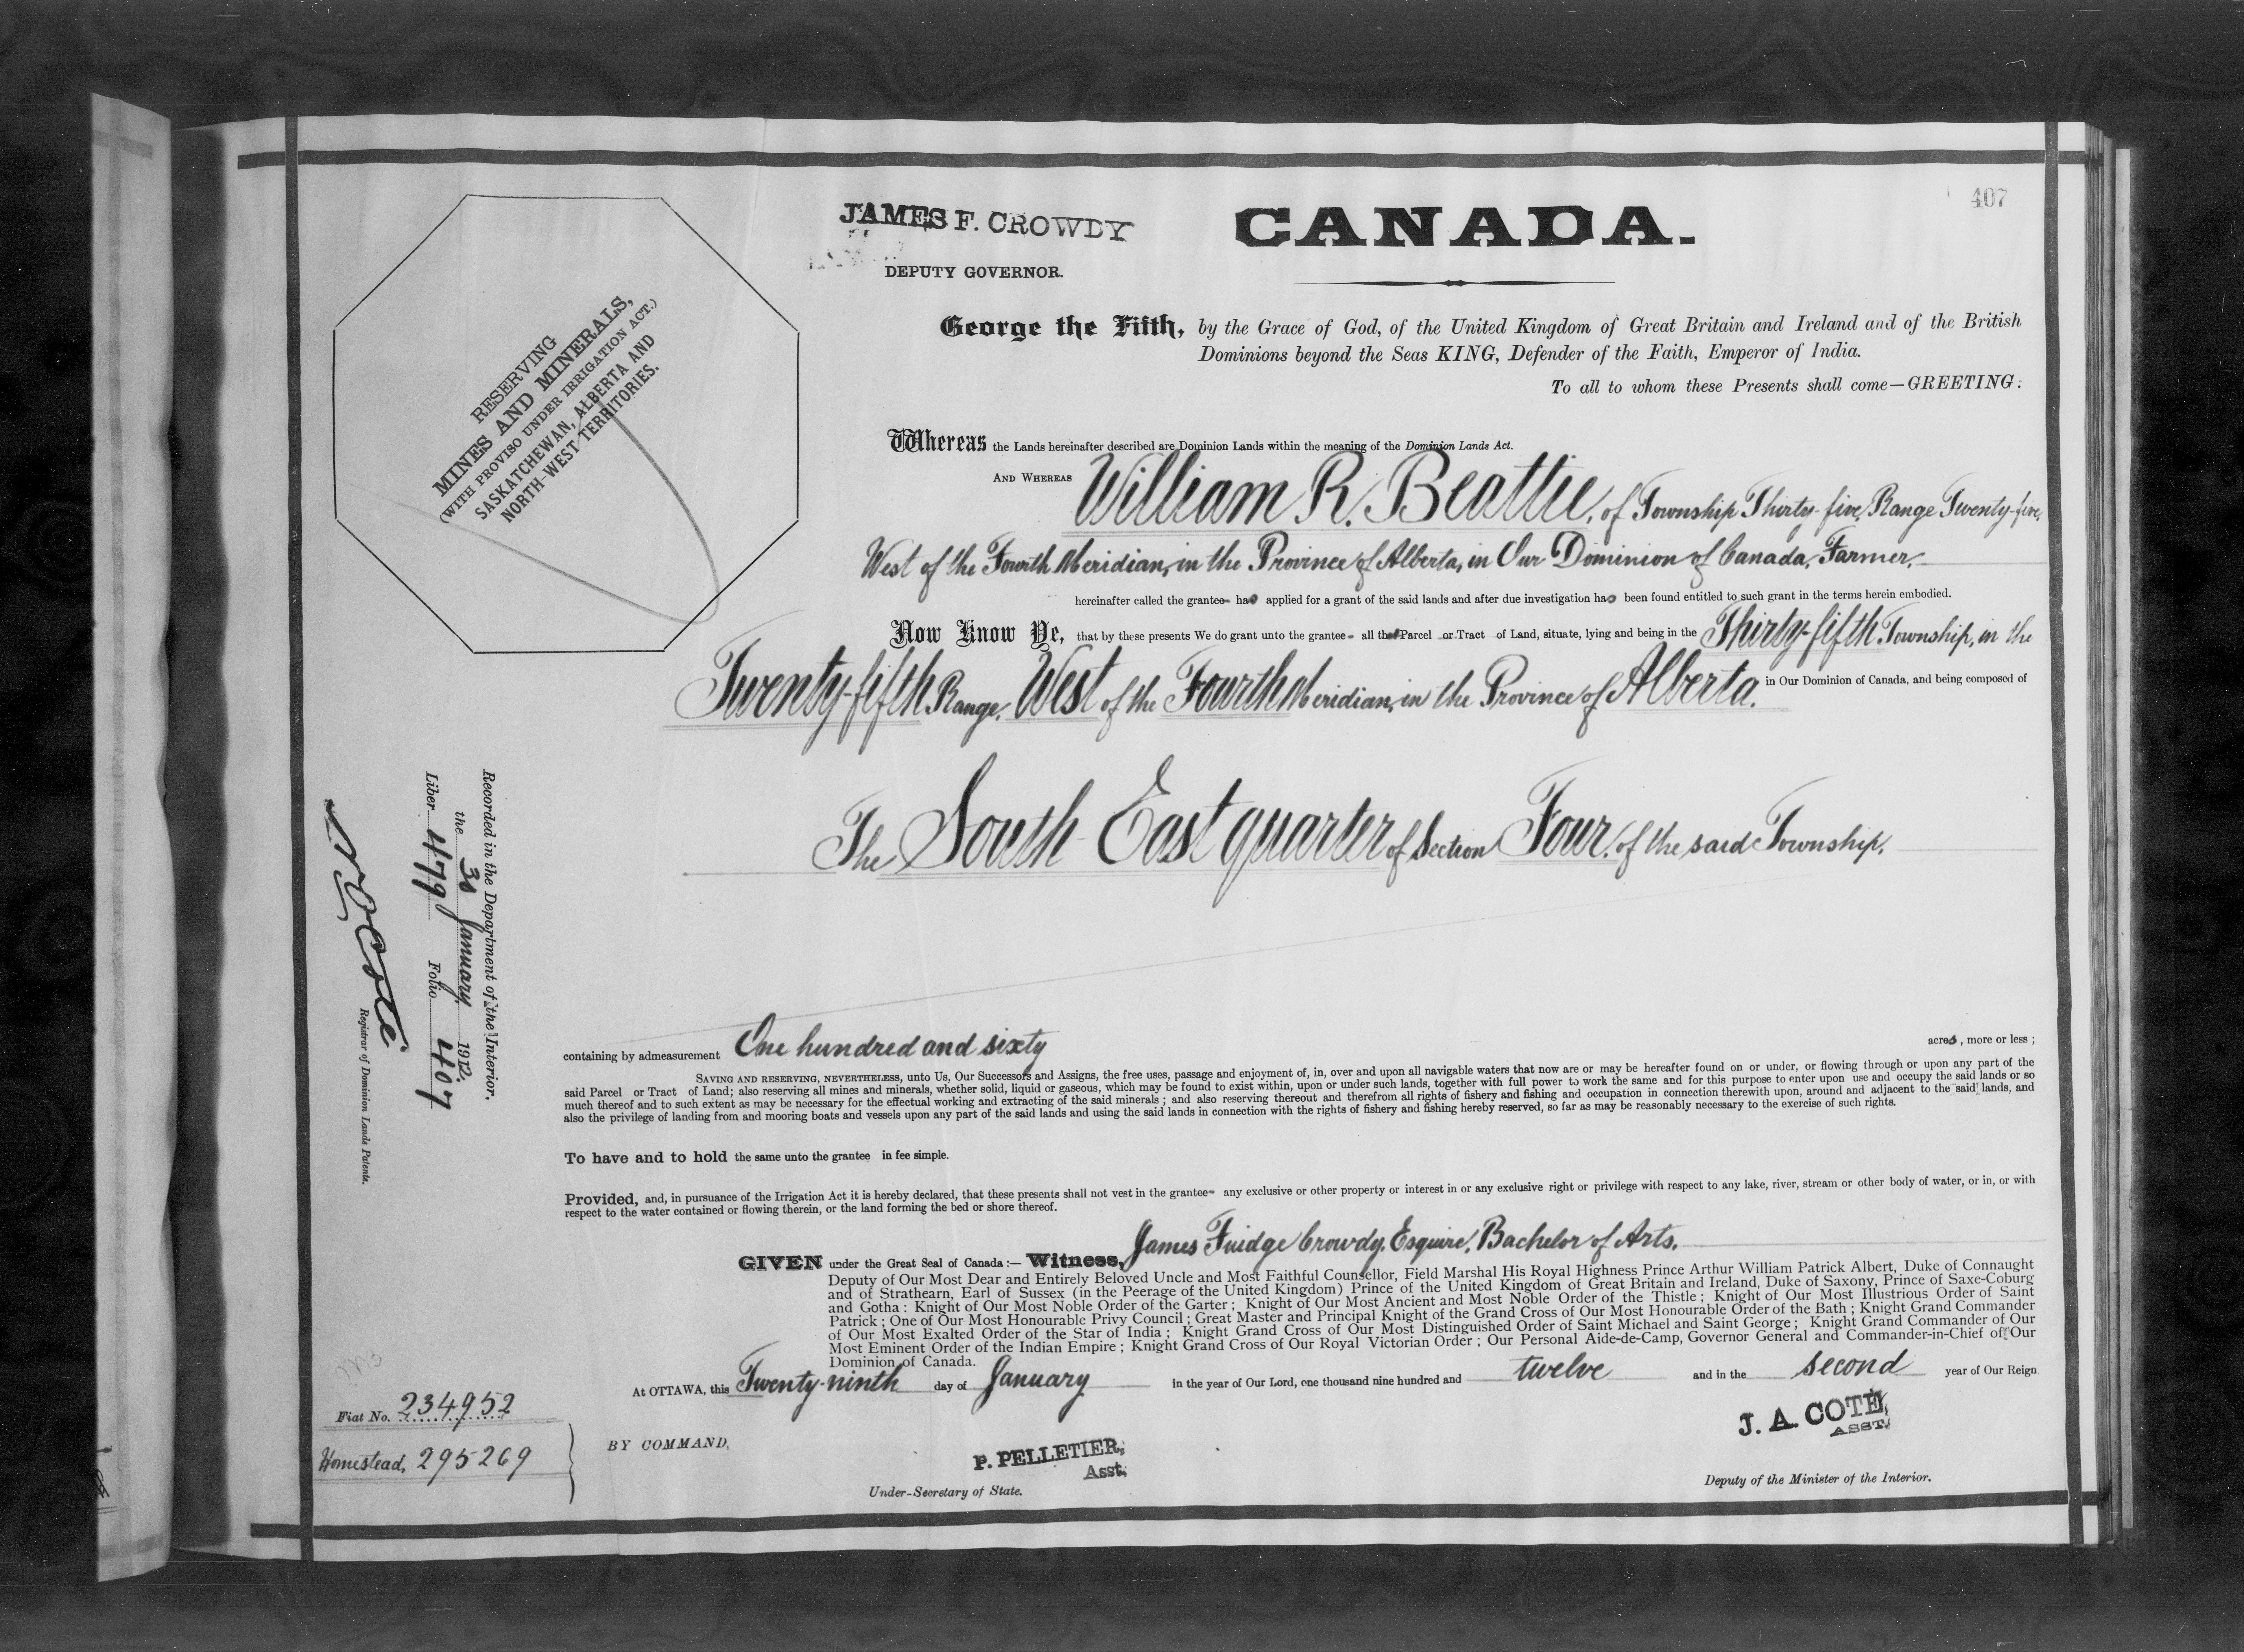 407
JAMES F. CROWDY
DEPUTY GOVERNOR.
CANADA.
RESERVING
MINES AND MINERALS,
(WITH PROVISO UNDER IRRIGATION ACT.)
SASKATCHEWAN, ALBERTA AND
NORTH-WEST TERRITORIES.
George the Fifth, by the Grace of God, of the United Kingdom of Great Britain and Ireland and of the British
Dominions beyond the Seas KING, Defender of the Faith, Emperor of India.
To all to whom these Presents shall come—GREETING:
Whereas the Lands hereinafter described are Dominion Lands within the meaning of the Dominion Lands Act.
AND WHEREAS William R. Beattie, of Township Thirty-five, Range Twenty-five,
West of the Fourth Meridian, in the Province of Alberta, in Our Dominion of Canada, Farmer,
hereinafter called the grantee has applied for a grant of the said lands and after due investigation has been found entitled to such grant in the terms herein embodied.
Now Know Ye, that by these presents We do grant unto the grantee all that Parcel or Tract of Land, situate, lying and being in the Thirty-fifth Township, in the
Twenty-fifth Range, West of the Fourth Meridian, in the Province of Alberta. in Our Dominion of Canada, and being composed of
The South East quarter of Section Four, of the said Township.
containing by admeasurement One hundred and sixty acres, more or less;
SAVING AND RESERVING, NEVERTHELESS, unto Us, Our Successors and Assigns, the free uses, passage and enjoyment of, in, over and upon all navigable waters that now are or may be hereafter found on or under, or flowing through or upon any part of the
said Parcel or Tract of Land; also reserving all mines and minerals, whether solid, liquid or gaseous, which may be found to exist within, upon or under such lands, together with full power to work the same and for this purpose to enter upon use and occupy the said lands or so
much thereof and to such extent as may be necessary for the effectual working and extracting of the said minerals; and also reserving thereout and therefrom all rights of fishery and fishing and occupation in connection therewith upon, around and adjacent to the said lands, and
also the privilege of landing from and mooring boats and vessels upon any part of the said lands and using the said lands in connection with the rights of fishery and fishing hereby reserved, so far as may be reasonably necessary to the exercise of such rights.
To have and to hold the same unto the grantee in fee simple.
Provided, and, in pursuance of the Irrigation Act it is hereby declared, that these presents shall not vest in the grantee any exclusive or other property or interest in or any exclusive right or privilege with respect to any lake, river, stream or other body of water, or in, or with
respect to the water contained or flowing therein, or the land forming the bed or shore thereof.
GIVEN under the Great Seal of Canada:— Witness, James Fuidge Crowdy, Esquire, Bachelor of Arts.
Deputy of Our Most Dear and Entirely Beloved Uncle and Most Faithful Counsellor, Field Marshal His Royal Highness Prince Arthur William Patrick Albert, Duke of Connaught
and of Strathearn, Earl of Sussex (in the Peerage of the United Kingdom) Prince of the United Kingdom of Great Britain and Ireland, Duke of Saxony, Prince of Saxe-Coburg
and Gotha: Knight of Our Most Noble Order of the Garter; Knight of Our Most Ancient and Most Noble Order of the Thistle; Knight of Our Most Illustrious Order of Saint
Patrick; One of Our Most Honourable Privy Council; Great Master and Principal Knight of the Grand Cross of Our Most Honourable Order of the Bath; Knight Grand Commander
of Our Most Exalted Order of the Star of India; Knight Grand Cross of Our Most Distinguished Order of Saint Michael and Saint George; Knight Grand Commander of Our
Most Eminent Order of the Indian Empire; Knight Grand Cross of Our Royal Victorian Order; Our Personal Aide-de-Camp, Governor General and Commander-in-Chief of Our
Dominion of Canada.
At OTTAWA, this Twenty-ninth day of January in the year of Our Lord, one thousand nine hundred and twelve and in the second year of Our Reign
BY COMMAND,
P. PELLETIER,
Asst.
Under-Secretary of State.
J. A. COTE,
ASST.
Deputy of the Minister of the Interior.
Recorded in the Department of the Interior.
the 30 January 1912.
Liber 479 Folio 407
N O Coté
Registrar of Dominion Lands Patents.
Fiat No. 234952
Homestead, 295269